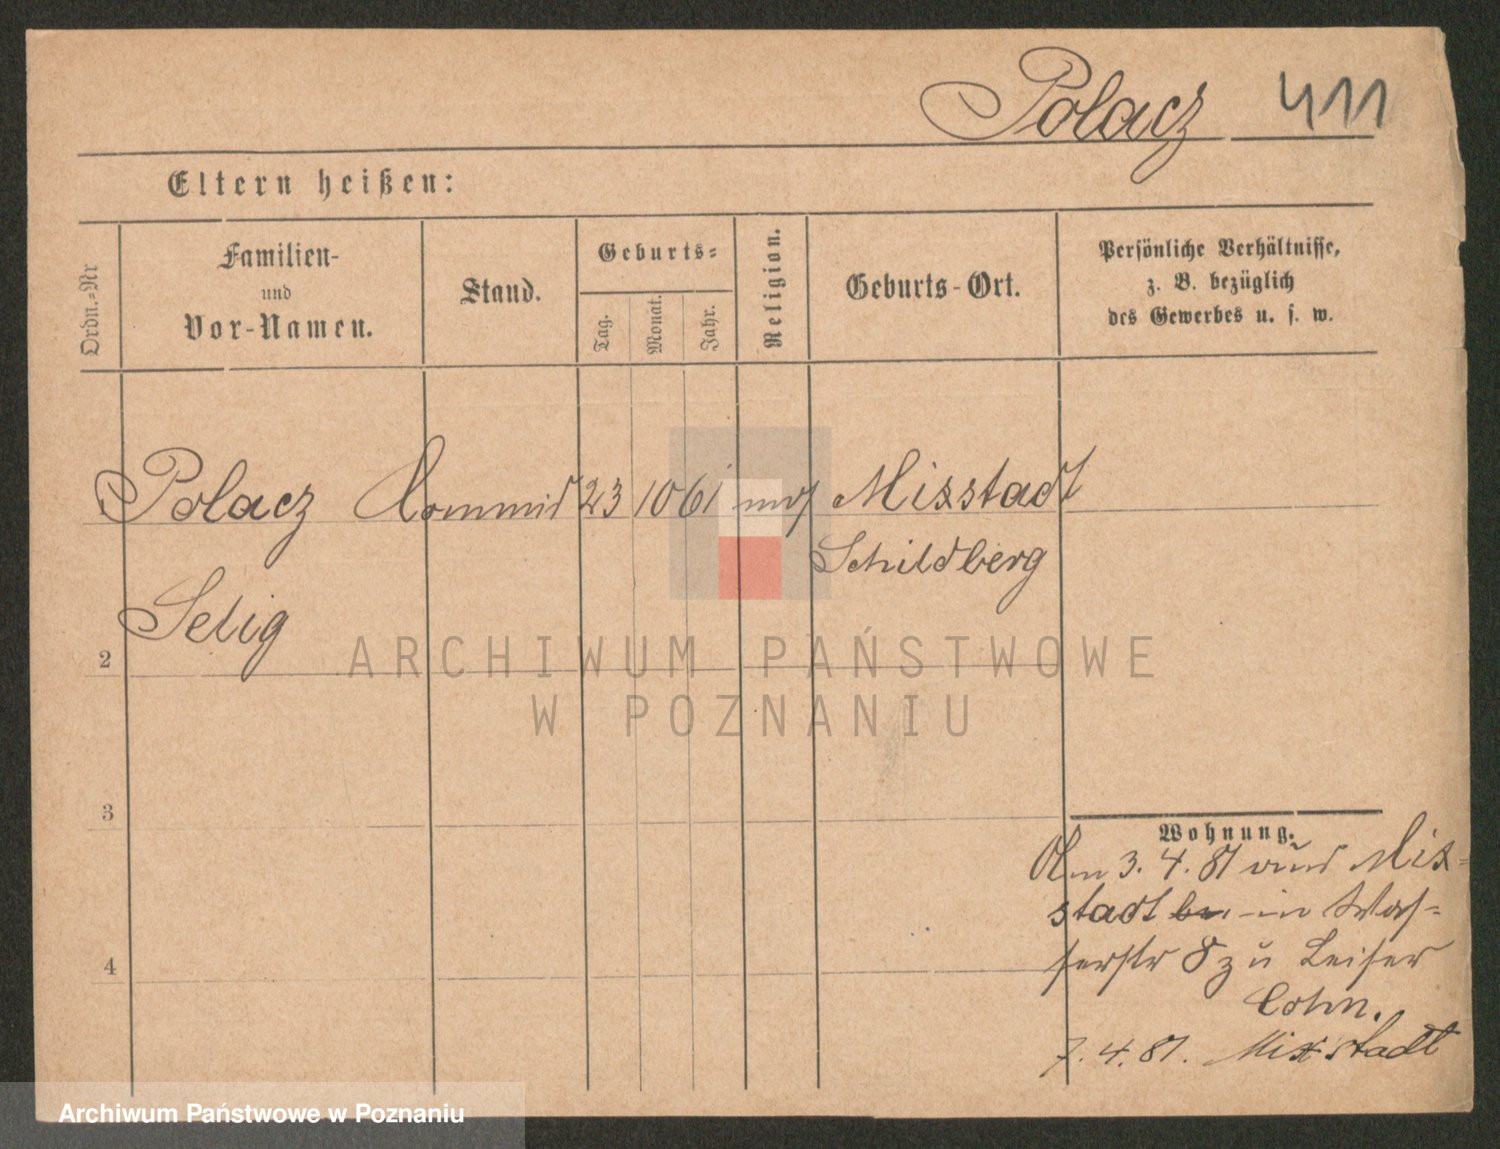 Polacz 411
Eltern heißen:
Ordn.-Nr
Familien-
und
Vor-Namen.
Stand.
Geburts-
Tag.
Monat.
Jahr.
Religion.
Geburts-Ort.
Persönliche Verhältnisse,
z. B. bezüglich
des Gewerbes u. s. w.
Polacz Commis 23 10 61 mos Mixstadt
Schildberg
Selig
2
3
4
Wohnung.
Am 3. 4. 81 aus Mix=
stadt in Was=
serstr 8 zu Leiser
Cohn.
7. 4. 81. Mixstadt
ARCHIWUM PAŃSTWOWE
W POZNANIU
Archiwum Państwowe w Poznaniu